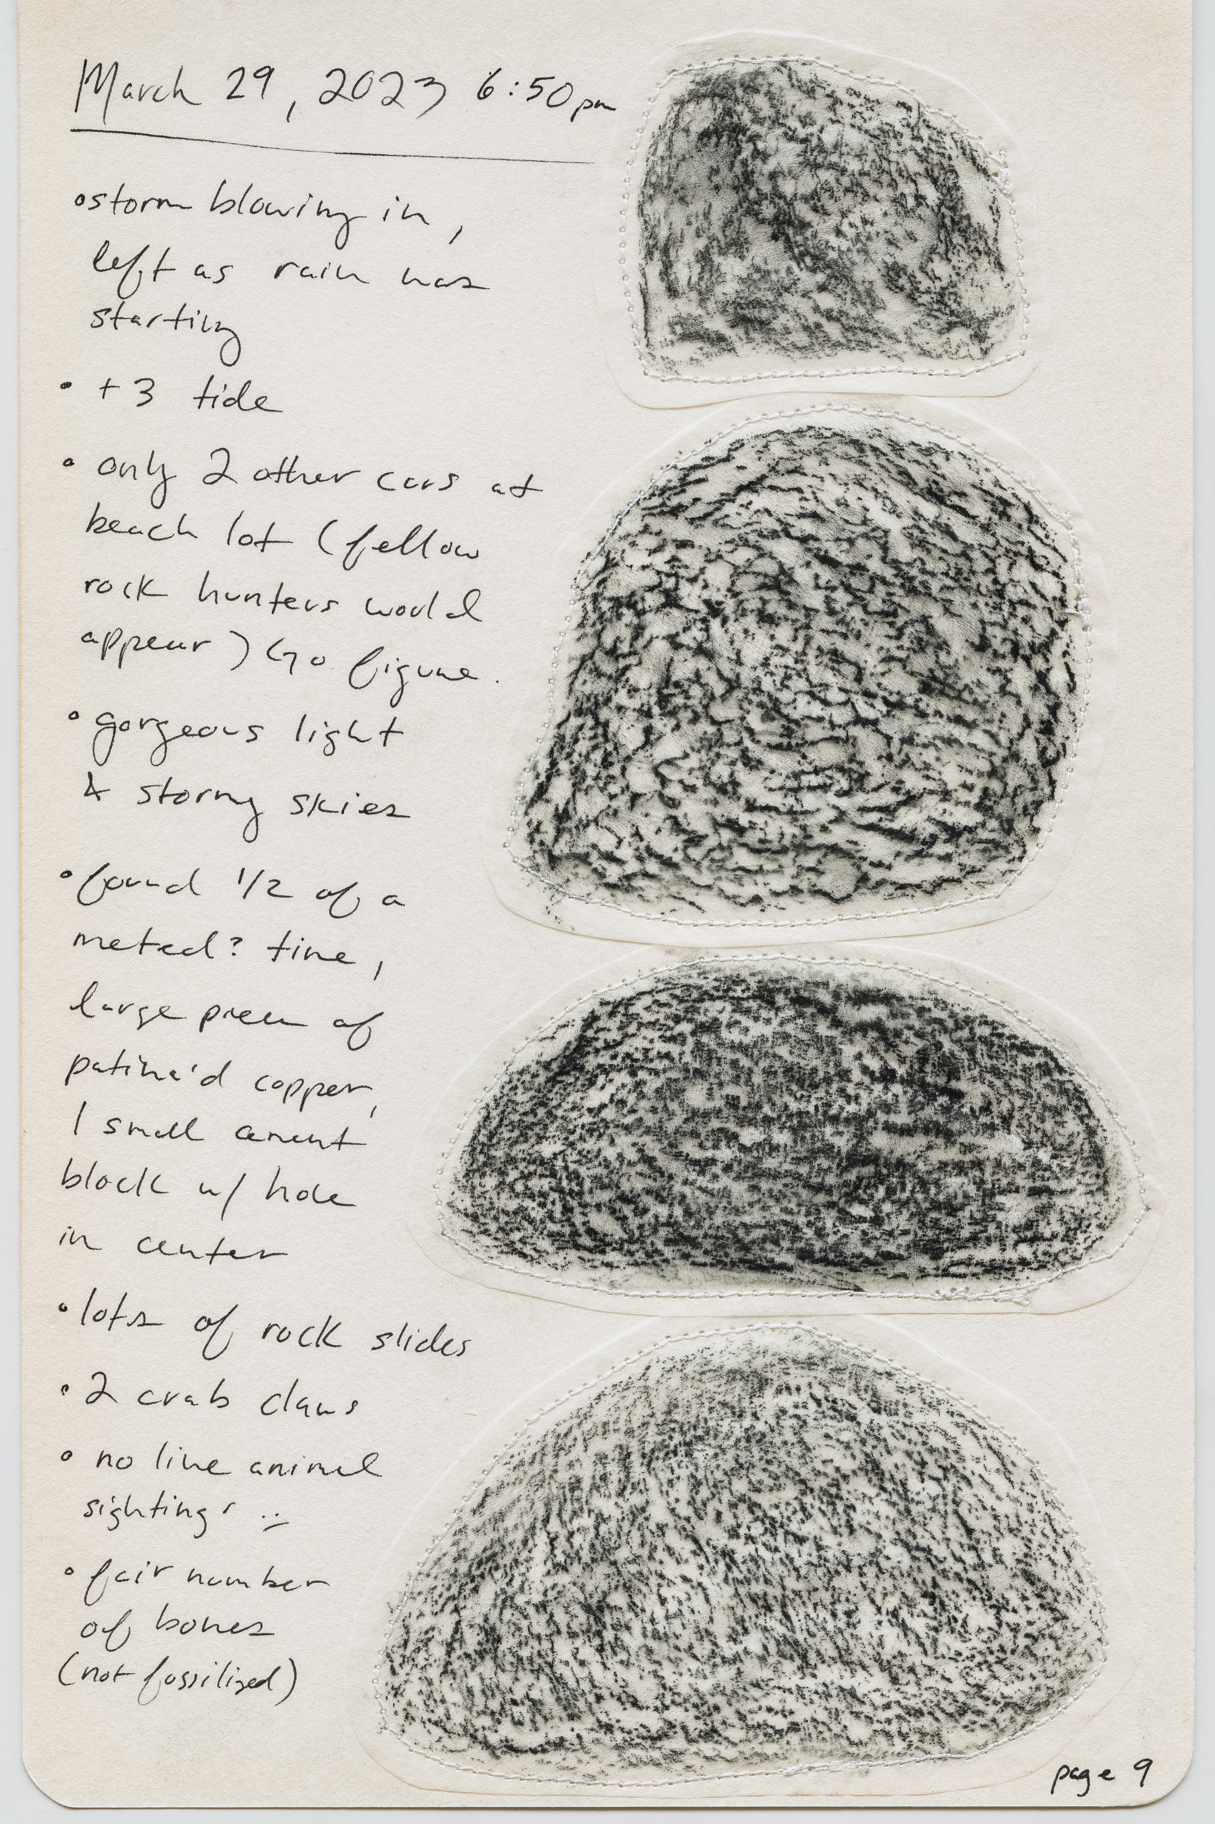 March 29, 2023 6:50pm
•storm blowing in,
left as rain was
starting
• +3 tide
• only 2 other cars at
beach lot (fellow
rock hunters would
appear) Go figure.
• gorgeous light
& stormy skies
• found 1/2 of a
metal? tine,
large piece of
patina'd copper,
1 small cement
block w/ hole
in center
• lots of rock slides
• 2 crab claws
• no live animal
sightings :(
• fair number
of bones
(not fossilized)
page 9